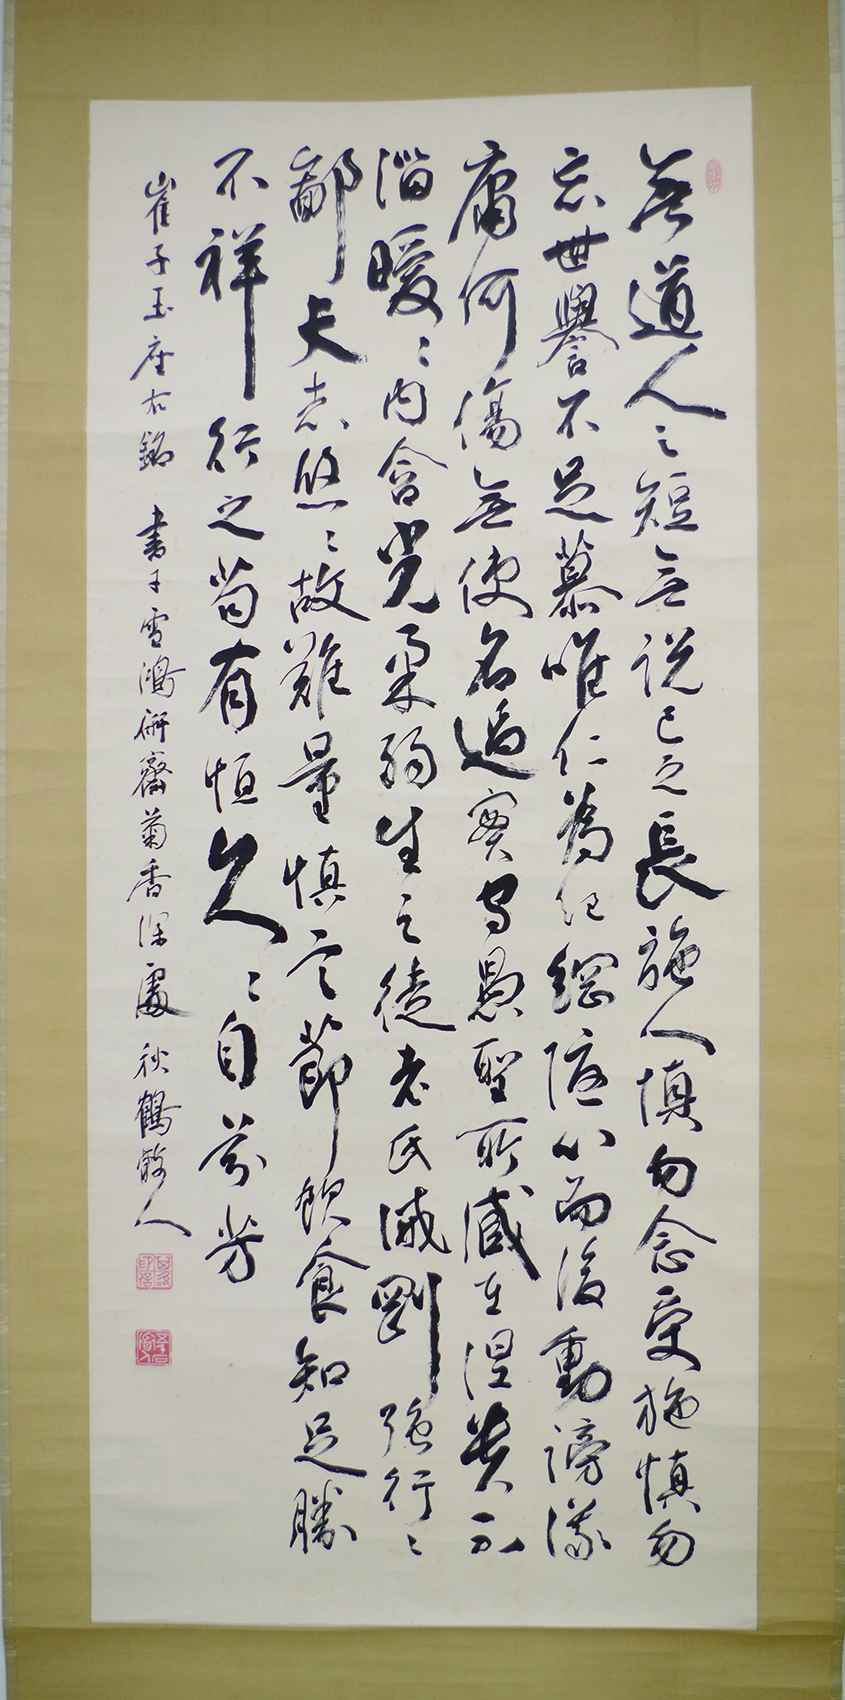 無道人之短無説己之長施人慎勿念受施慎勿
忘世譽不足慕唯仁為紀綱隱心而後動謗議
庸何傷無使名過實守愚聖所臧在涅貴不
淄曖〻内含光柔弱生之徒老氏誡剛強行〻
鄙夫志悠〻故難量慎言節飲食知足勝
不祥行之苟有恒久〻自芬芳
崔子玉座右銘 書于雪鴻研齋菊香深處 秋鶴散人